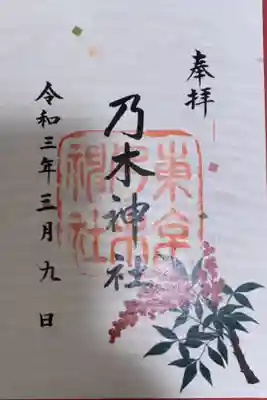 奉拝
乃木神社
東京乃木神社
令和三年三月九日